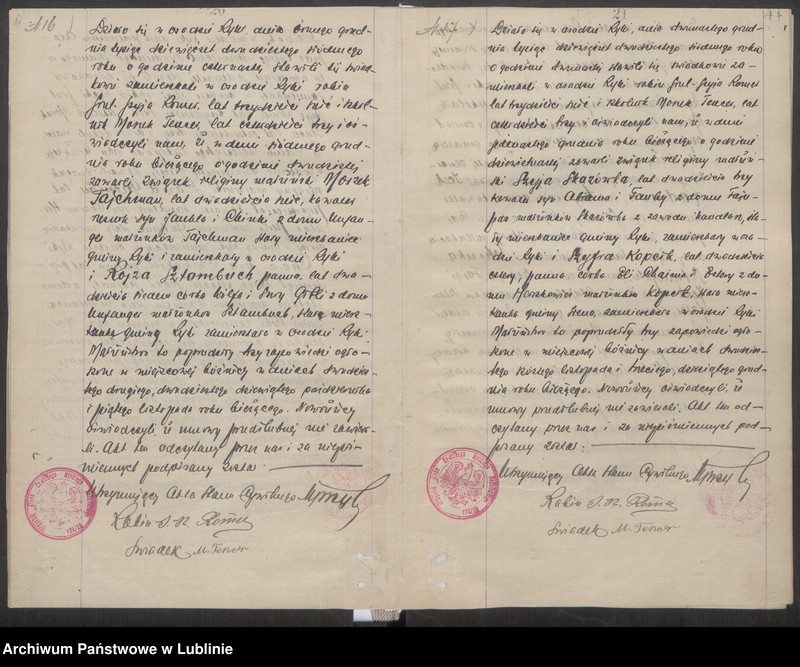 № 16)
Działo się w osadzie Ryki, dnia ósmego grud-
nia tysiąc dziewięćset dwudziestego siódmego
roku o godzinie czternastej stawili się świad-
kowie zamieszkali w osadzie Ryki rabin
Srul-Szyja Romer, lat trzydzieści
Morek Tencer, lat czterdzieści trzy i oś-
wiadczyli nam, iż w dniu siódmego grud-
nia roku bieżącego o godzinie dwudziestej
zawarli związek religijny małżeński Moszek
Tajchman, lat dwadzieścia sześć, kawaler
syn Jankla i z domu Unfan-
ger małżonków Tajchman stały mieszkaniec
gminy Ryki i zamieszkały w osadzie Ryki
i Rojza Sztambuch panna, lat dwa-
dzieścia siedem córka Wilfa i z domu
Unfanger małżonków Sztambuch, stała miesz-
kanka gminy Ryki zamieszkała w osadzie Ryki.
Małżeństwo to poprzedziły trzy zapowiedzi ogło-
szone w miejscowej bóżnicy w dniach dwudzie-
stego drugiego, dwudziestego dziewiątego października
i piątego listopada roku bieżącego. Nowożeńcy
oświadczyli, iż umowy przedślubnej nie zawar-
li. Akt ten odczytany przez nas i za niepiś-
miennych podpisany został.
Utrzymujący Akta Stanu Cywilnego
Rabin S. R. Romer
Świadek M. Tencer
21
77
№ 17)
Działo się w osadzie Ryki, dnia dwunastego grud-
nia tysiąc dziewięćset dwudziestego siódmego roku
o godzinie dwunastej stawili się świadkowie za-
mieszkali w osadzie Ryki rabin Srul-Szyja Romer
lat trzydzieści i Morek Tencer, lat
czterdzieści trzy i oświadczyli nam, iż w dniu
jedenastego grudnia roku bieżącego o godzinie
dziewiętnastej zawarli związek religijny małżeń-
ski Szyja Skazówka, lat dwadzieścia trzy
kawaler syn Abrama i z domu
małżonków Skazówka z zawodu handlarz, sta-
ły mieszkaniec gminy Ryki, zamieszkały w osa-
dzie Ryki i Szyfra Kopcik, lat dwadzieścia
cztery, panna córka z do-
mu małżonków Kopcik, stała miesz-
kanka gminy zamieszkała w osadzie Ryki.
Małżeństwo to poprzedziły trzy zapowiedzi ogło-
szone w miejscowej bóżnicy w dniach dwudzie-
stego szóstego listopada i trzeciego, dziesiątego grud-
nia roku bieżącego. Nowożeńcy oświadczyli, iż
umowy przedślubnej nie zawierali. Akt ten od-
czytany przez nas i za niepiśmiennych pod-
pisany został.
Utrzymujący Akta Stanu Cywilnego
Rabin S. R. Romer
Świadek M. Tencer
Archiwum Państwowe w Lublinie